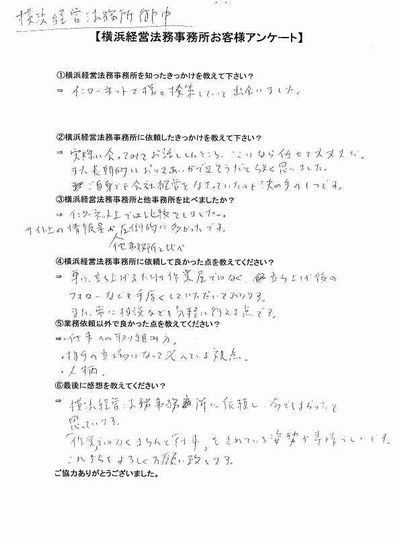 横浜経営法務所御中
【横浜経営法務事務所お客様アンケート】
①横浜経営法務事務所を知ったきっかけを教えて下さい?
⇒ インターネットで様々検索していて出会いました。
②横浜経営法務事務所に依頼したきっかけを教えて下さい?
⇒ 実際に会ってみてお話ししたところ、ここなら任せて大丈夫だ。
また長期的におつきあいができそうだと強く思いました。
ご自身でも会社経営をなさっていたのも決め手の1つです。
③横浜経営法務事務所と他事務所を比べましたか?
⇒ インターネット上では比較をしました。
サイト上の情報量が圧倒的に多かったです。
他事務所と比べ
④横浜経営法務事務所に依頼して良かった点を教えてください?
⇒ 単に立ち上げるだけの作業屋ではなく、立ち上げ後の
フォローなども手厚くしていただいております。
また、常に相談などを気軽に行える点です。
⑤業務依頼以外で良かった点を教えてください?
⇒・仕事への取り組み方。
・相手の立場になって考えている視点。
・人柄。
⑥最後に感想を教えてください?
⇒ 横浜経営法務事務所に依頼し、今でもよかったと
思っている。
作業ではなくきちんと「仕事」をされている姿勢が素晴らしいです。
これからもよろしくお願い致します。
ご協力ありがとうございました。